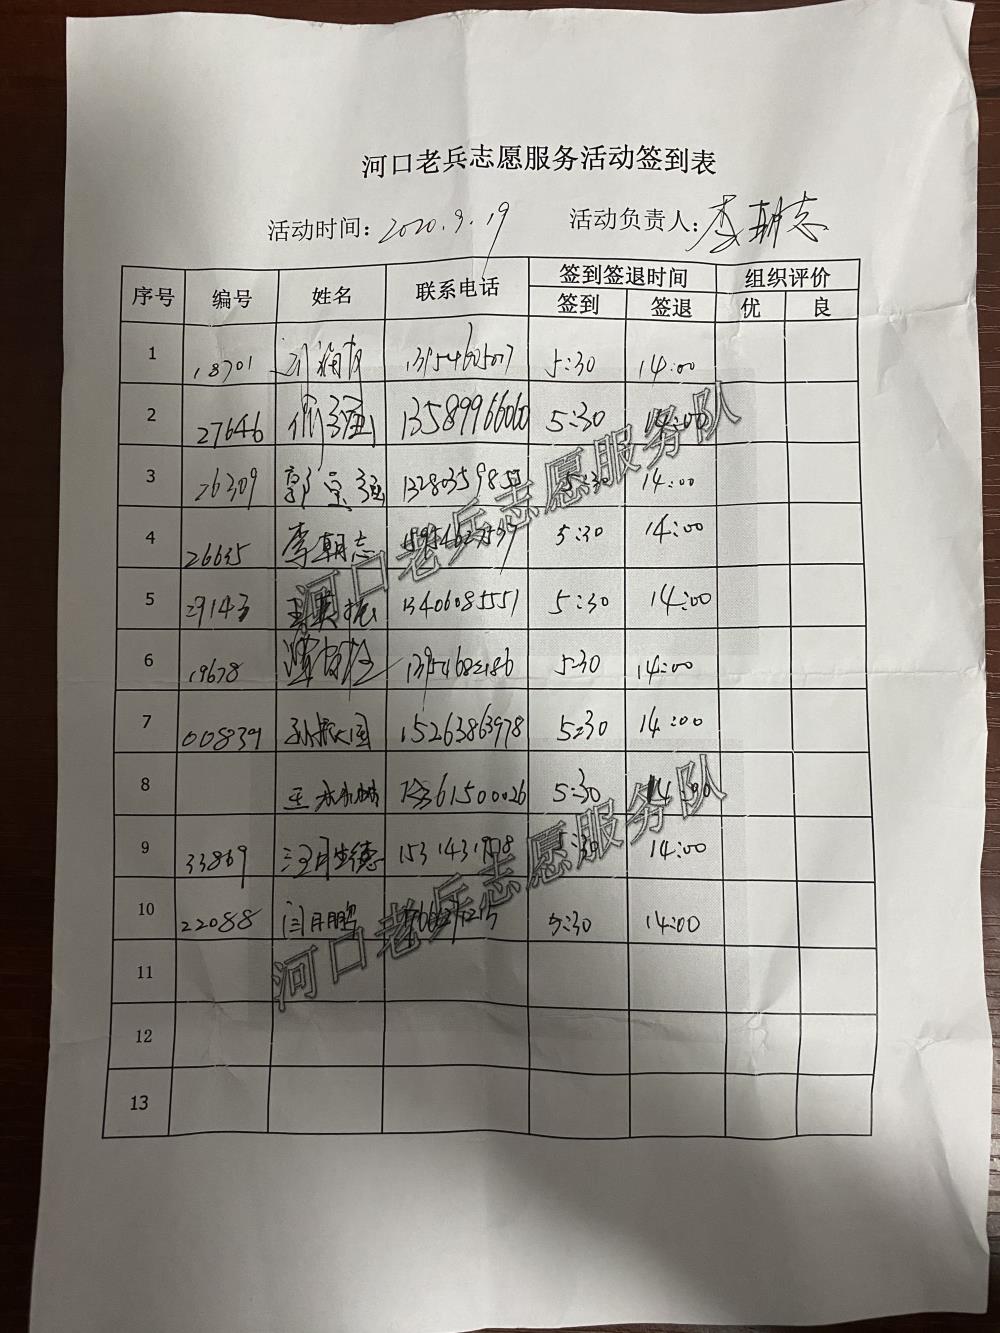 河口老兵志愿服务活动签到表
活动时间：2020.9.19 活动负责人：李朝志
序号 编号 姓名 联系电话 签到签退时间 组织评价
签到 签退 优 良
1 18701 13954605007 5:30 14:00
2 27646 强 13589966060 5:30 14:00
3 26309 郭宗强 5:30 14:00
4 26635 李朝志 5:30 14:00
5 29143 王英振 13406085551 5:30 14:00
6 19678 13954682186 5:30 14:00
7 008839 孙振国 15263863978 5:30 14:00
8 王 5:30 14:00
9 33869 汪月德 5:30 14:00
10 22088 闫月鹏 5:30 14:00
11
12
13
河口老兵志愿服务队
河口老兵志愿服务队